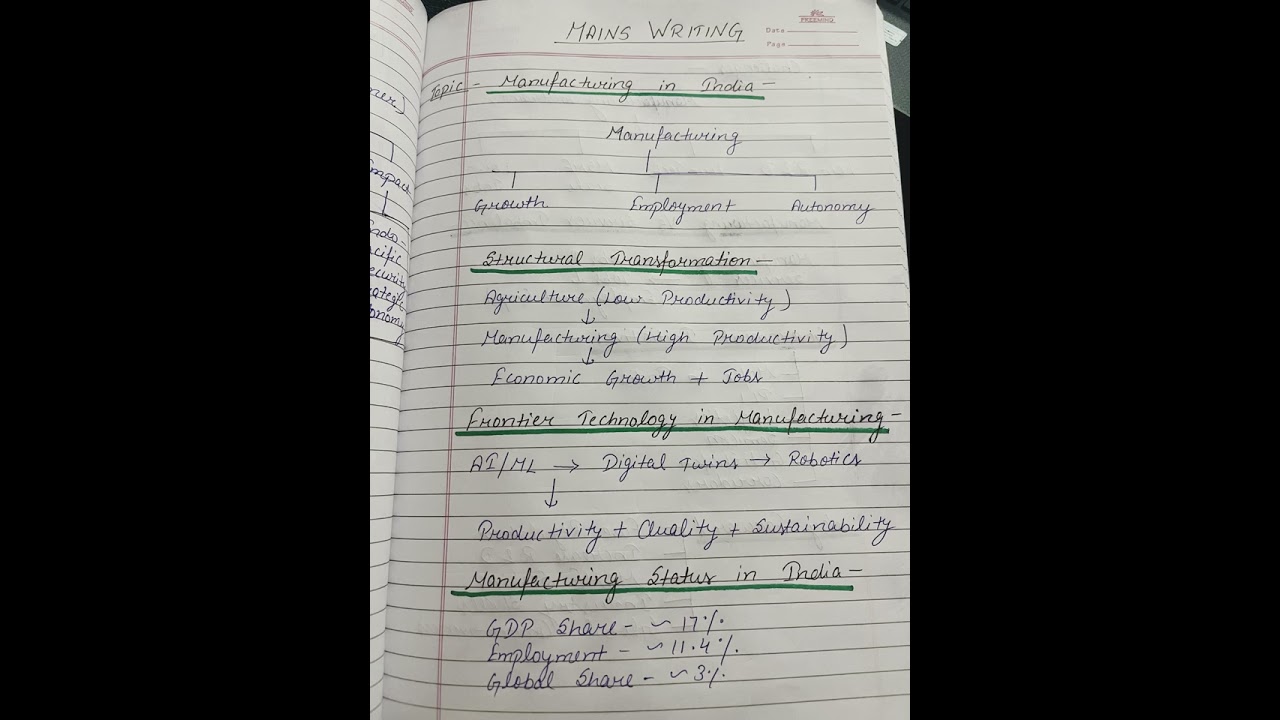 FREEMIND
MAINS WRITING
Date
Page
Topic - Manufacturing in India -
Manufacturing
Growth Employment Autonomy
Structural Transformation -
Agriculture (Low Productivity)
↓
Manufacturing (High Productivity)
↓
Economic Growth + Jobs
Frontier Technology in Manufacturing -
AI/ML → Digital Twins → Robotics
↓
Productivity + Quality + Sustainability
Manufacturing Status in India -
GDP Share - ~ 17%.
Employment - ~ 11.4%.
Global Share - ~ 3%.